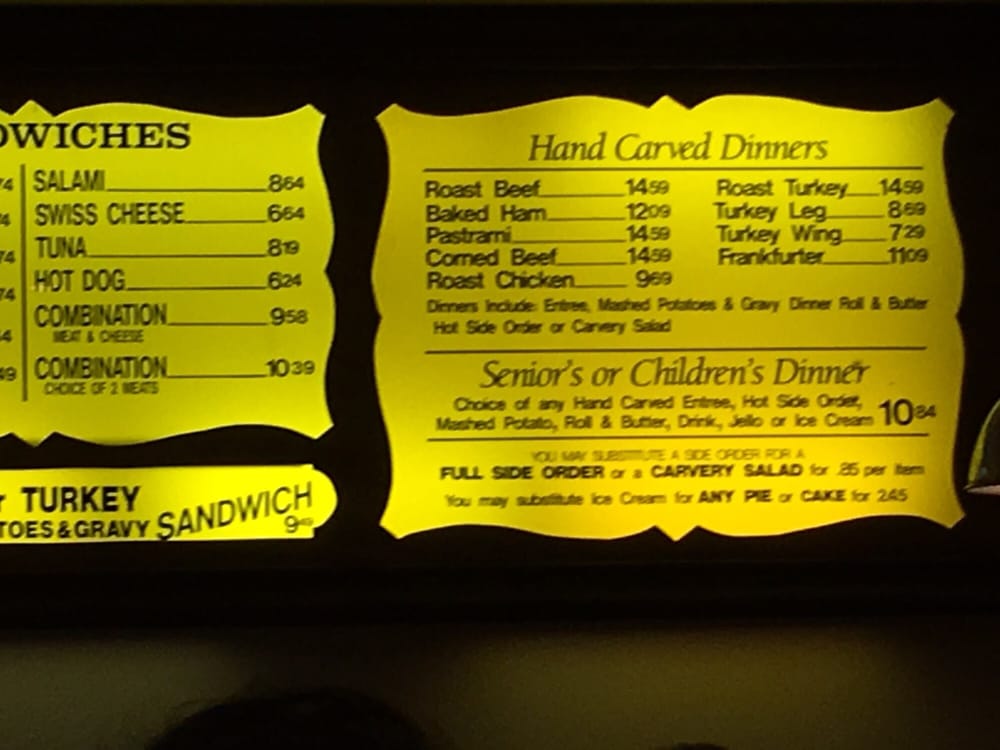 DWICHES
SALAMI 8 64
SWISS CHEESE 6 64
TUNA 8 19
HOT DOG 6 24
COMBINATION 9 58
MEAT & CHEESE
COMBINATION 10 39
CHOICE OF 2 MEATS
TURKEY
TOES & GRAVY SANDWICH
Hand Carved Dinners
Roast Beef 14 59 Roast Turkey 14 59
Baked Ham 12 09 Turkey Leg 8 69
Pastrami 14 59 Turkey Wing 7 29
Corned Beef 14 59 Frankfurter 11 09
Roast Chicken 9 69
Dinners Include: Entree, Mashed Potatoes & Gravy Dinner Roll & Butter
Hot Side Order or Carvery Salad
Senior's or Children's Dinner
Choice of any Hand Carved Entree, Hot Side Order,
Mashed Potato, Roll & Butter, Drink, Jello or Ice Cream 10 84
YOU MAY SUBSTITUTE A SIDE ORDER FOR A
FULL SIDE ORDER or a CARVERY SALAD for .85 per item
You may substitute Ice Cream for ANY PIE or CAKE for 2.45